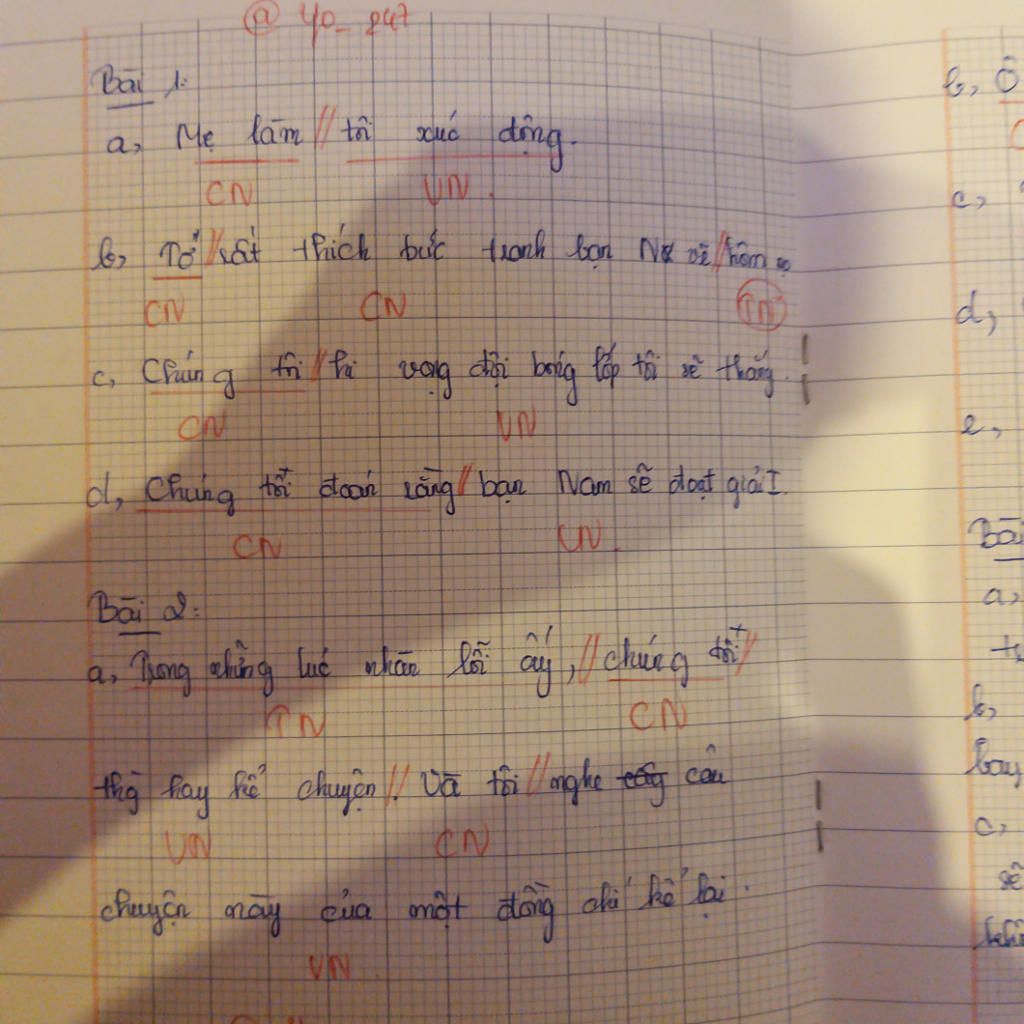 @ yo_247
Bài 1:
a, Mẹ làm // tôi xúc động.
CN VN.
b, Tớ // rất thích bức tranh bạn vẽ // hôm
CN CN TN
c, Chúng tôi // hi vọng đội bóng lớp tôi sẽ thắng.
CN VN
d, Chúng tôi đoán rằng // bạn Nam sẽ đoạt giải I.
CN VN.
Bài 2:
a, Trong những lúc nhàn rỗi ấy, // chúng tôi //
TN CN
thg hay kể chuyện //. Và tôi // nghe câu
VN CN
chuyện này của một đồng chí kể lại.
VN
b, Ô
c,
d,
e,
Bài
a,
b,
bay
c,
sẽ